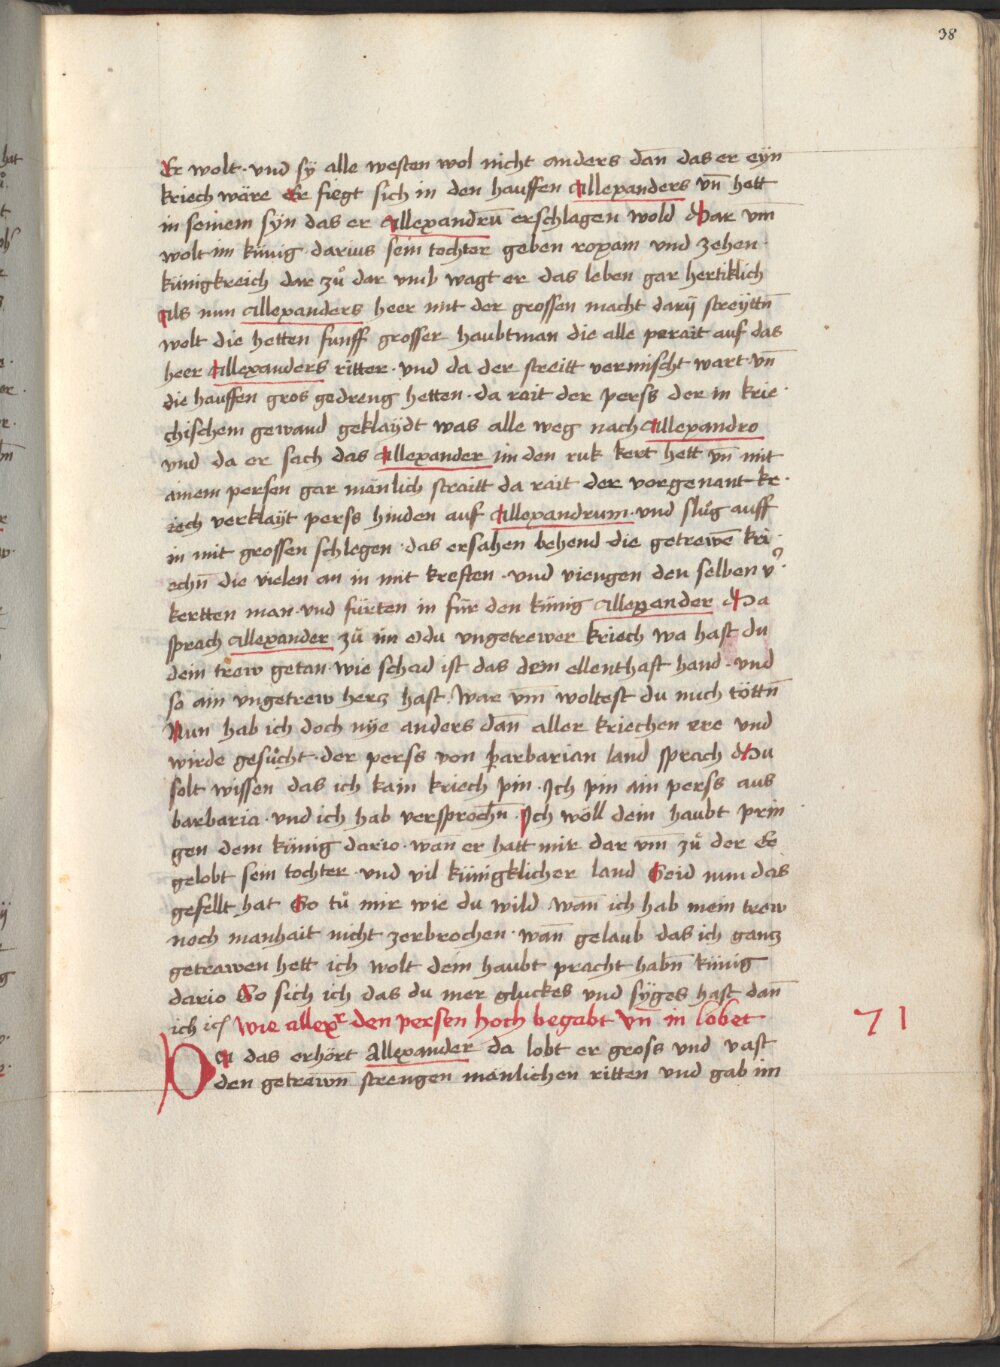 38
Er wolt · vnd sÿ alle westen wol nicht anders dan̄ das er eÿn
kriech wäre Er fiegt sich in den hauffen Allexanders vn̄ hett
in seinem syn das er Allexandrū erschlagen wold Dar vm̄
wolt im künig · darius sein tochter geben roxam und zehen ·
künigkreich dar zů dar vmb wagt er das leben gar hertiklich
Als nun Allexanders heer mit der grossen macht darij streÿttn̄
wolt die hetten funff grosser haubtman die alle perait auf das
heer Allexanders ritter · vnd da der streitt vermischt wart · vn̄
die hauffen gros gedreng hetten · da rait der perss der in krie ·
chischem gewand geklaÿdt was alle weg nach Allexandro
vnd da er sach das Allexander im den ruk kert hett vn̄ mit
ainem persen gar mänlich straitt da rait der vorgenant kr ·
iech verklaÿt perss hinden auf Allexandrum · vnd slůg auff
in mit grossen schlegen · das ersahen behend die getrewē kri ·
echn̄ die vielen an in mit kreften · vnd viengen den selben v̉ ·
kertten man · vnd fürten in für den künig Allexander Da
sprach Allexander zů im O du vngetrewer kriech wa hast du
dein trew getan · wie schad ist das dein ellenthaft hand · vnd
so ain vngetrew hercz hast · War vm̄ woltest du mich töttn̄
Nun hab ich doch nÿe anders dan̄ aller kriechen ere vnd
wirde gesůcht · der perss von parbarian land sprach Du
solt wissen das ich kain kriech pin · Ich pin ain perss aus
barbaria · vnd ich hab versprochn̄ · Ich wöll dein haubt prin
gen dem künig dario · wan̄ er hatt mir dar vm̄ zů der Ee
gelobt sein tochter · vnd vil künigklicher land Seid nun das
gefellt hat So tů mir wie du wild wan̄ ich hab mein trew
noch manhait nicht zerbrochen · wan̄ gelaub das ich gancz
getrawen hett ich wolt dein haubt pracht habn̄ künig
dario So sich ich das du mer gluckes vnd sÿges hast dan̄
ich wie allexr den persen hoch begabt vn̄ in lobet
71
Da das erhört Allexander da lobt er gross vnd vast
den getrewn̄ strengen mänlichen ritten vnd gab im